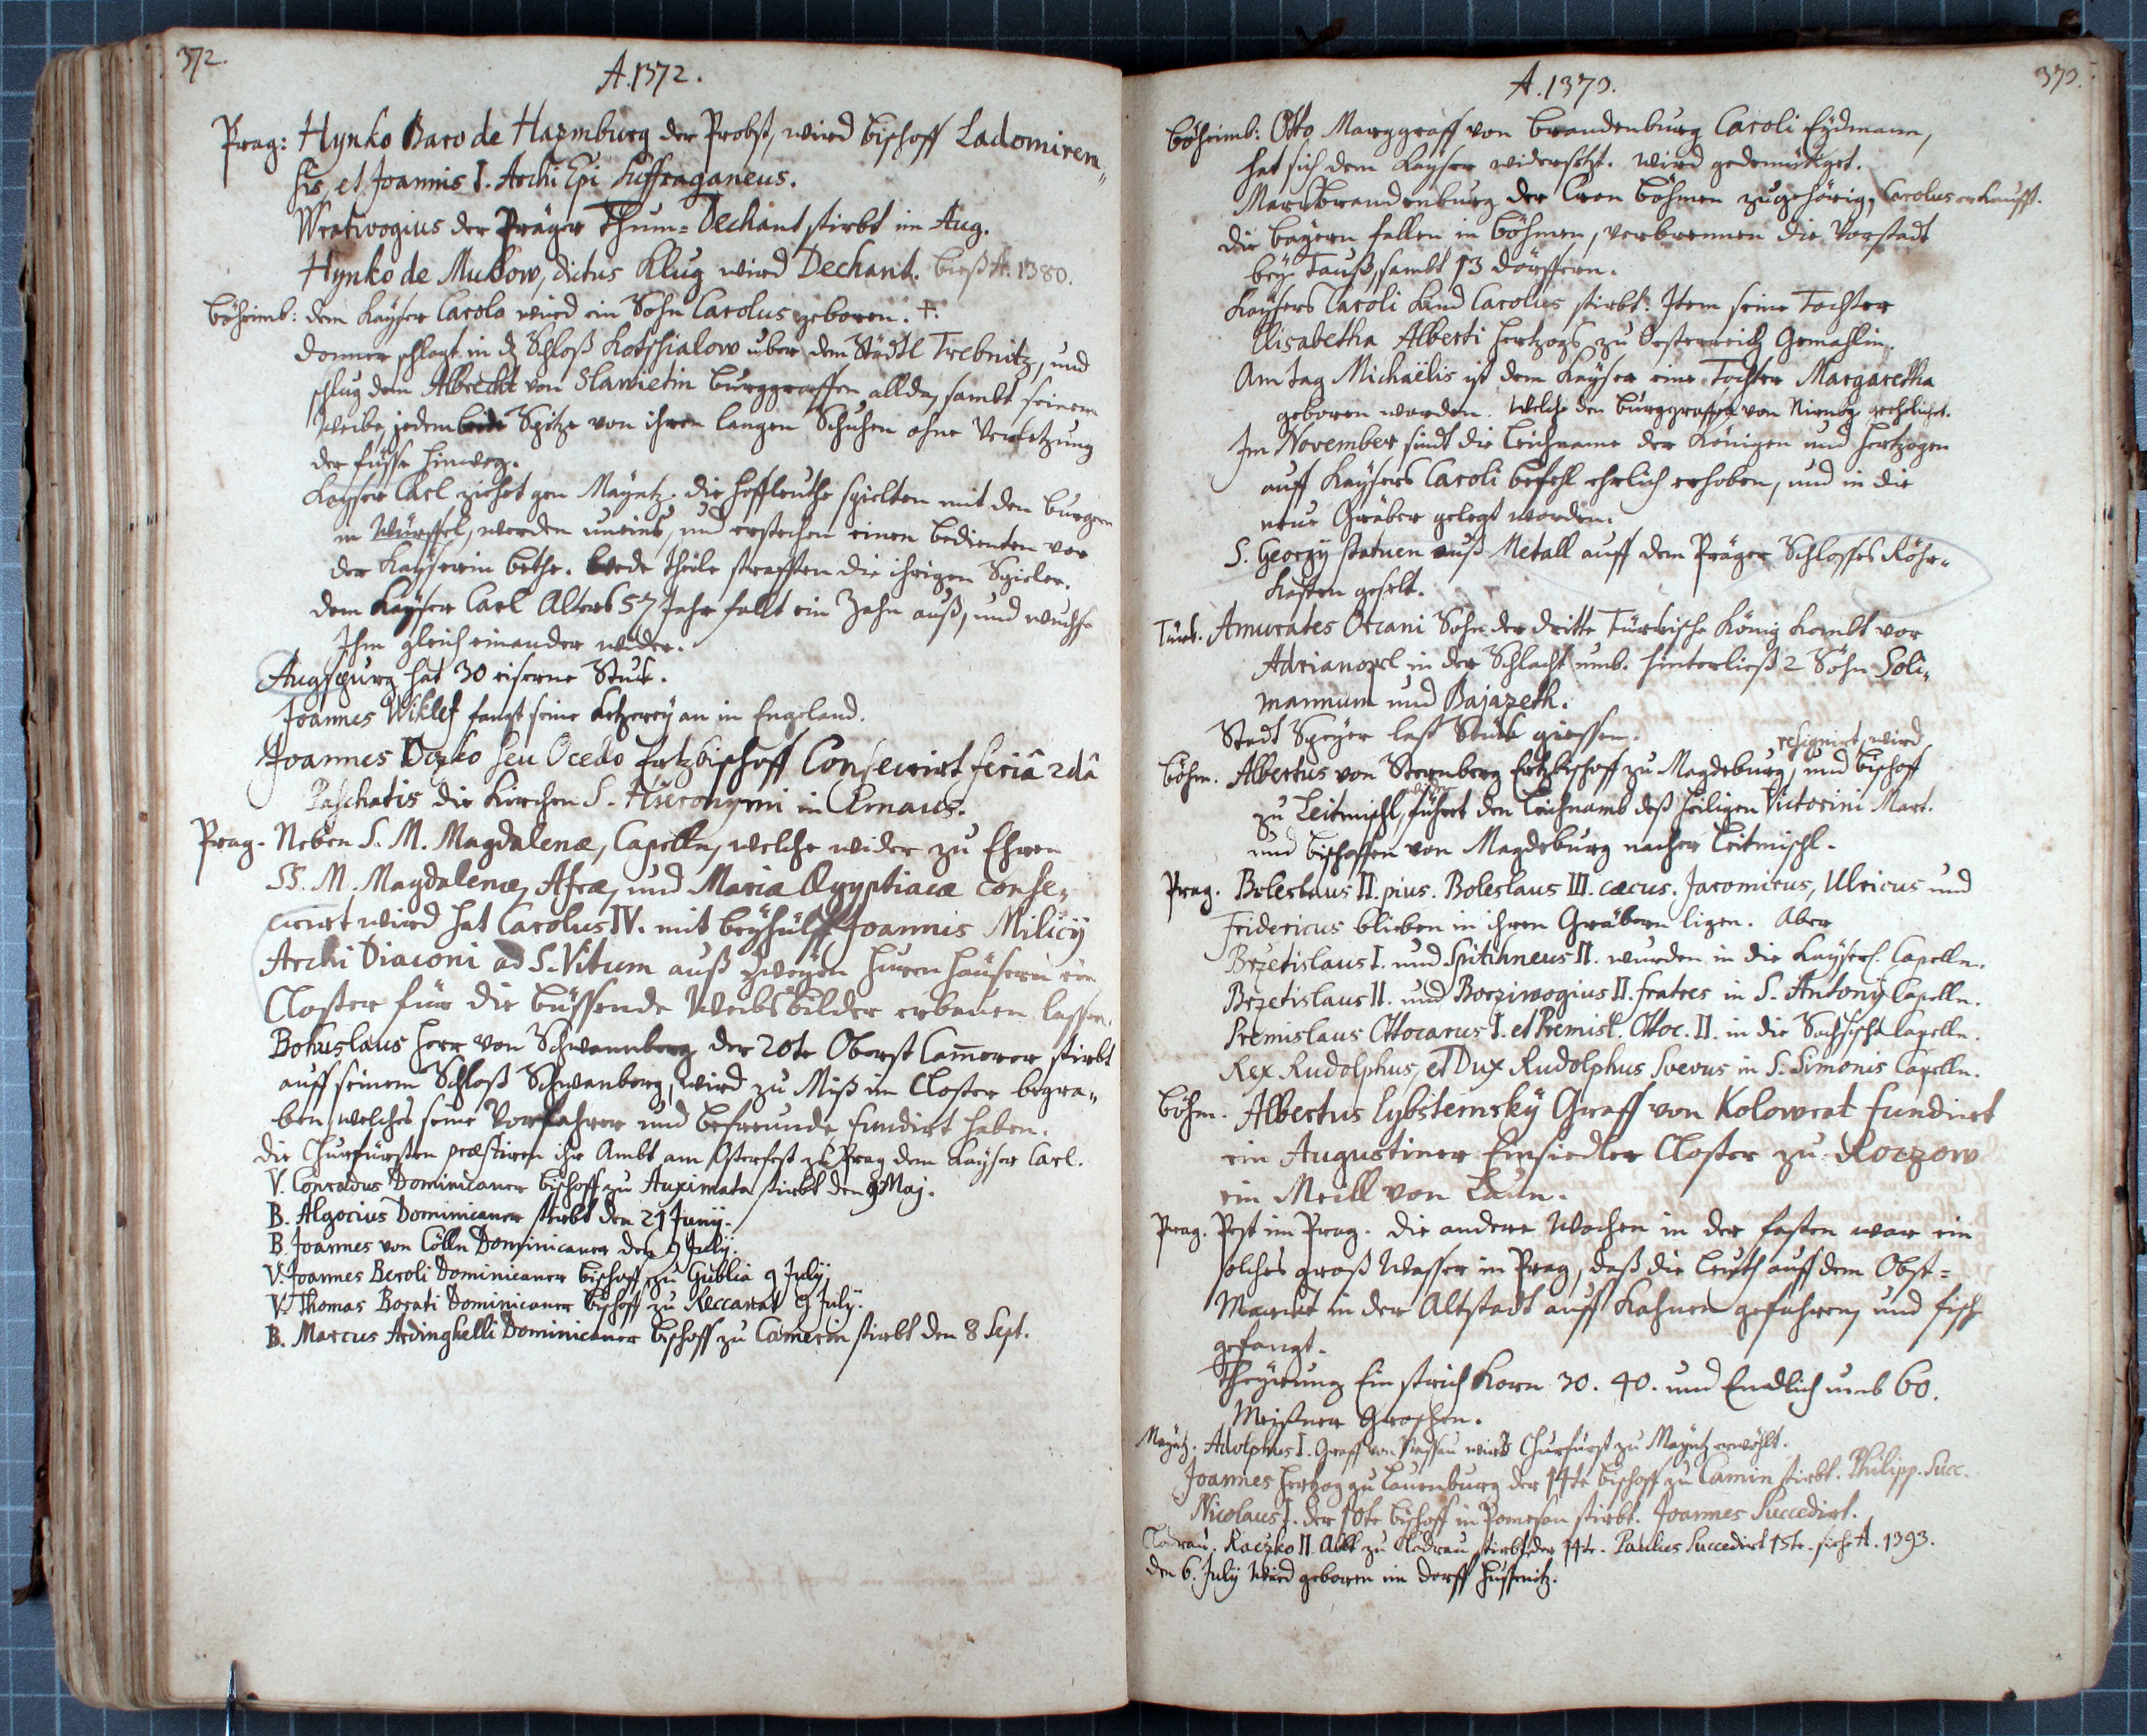 372.
A. 1372.
Prag: Hynko Baro de Hazmburg der Probst, wird Bischoff Ladomiren„
sis, et Joannis I. Archi Epi Suffraganeus.
Wratwogius der Präger Thum=Dechant stirbt im Aug.
Hynko de Mukow, dictus Klug wird Dechant. bieß A. 1380.
Böheimb: dem Kayser Carolo wird ein Sohn Carolus geboren. +.
Donner schlagt in dz Schloß Kotschialow uber dem Städtl Trebnitz, und
schlug dem Albrecht von Slawietin Burggraffen allda, sambt seinem
Weibe, jedem beide Spitze von ihren langen Schuhen ohne Verletzung
der füsse hinweg.
Kayser Carl ziehet gen Mayntz. die Hoffleuthe spielten mit den Burgern
in Würffel, werden uneins, und erstechen einen bedienten vor
der Kayserin bethe. beede theile strafften die ihrigen Spieler.
dem Kayser Carl Alters 57 Jahr fallt ein Zahn auß, und wuchse
Ihm gleich einander wider.
Augspurg hat 30 eiserne Stuck.
Joannes Wiklef fangt seine Ketzerey an in Engeland.
Joannes Oczko seu Ocedo Ertzbischoff Consecrirt feriâ 2dâ
Paschatis die Kirchen S. Hieronymi in Emaus.
Prag. Neben S. M. Magdalenæ, Capelln, welche wider zu Ehren
SS. M. Magdalenæ, Afræ, und Mariæ Ægyptiacæ conse„
crirt wird hat Carolus IV. mit beyhülff Joannis Milicij
Archi Diaconi ad S. Vitum auß zweyen hurenhäusern ein
Closter für die büssende Weibsbilder erbauen lassen.
Bohuslaus Herr von Schwannberg der 20te Oberst Cam̅erer stirbt
auff seinem Schloß Schwanberg, wird zu Miß im Closter begra„
ben, welches seine Vorfahrer und befreunde fundirt haben.
die Churfürsten præstiren ihr Ambt am Osterfest zu Prag dem Kayser Carl.
V. Conradus Dominicaner Bischoff zu Auximata stirbt den 9 Maj.
B. Algocius Dominicaner stirbt den 21 Junij.
B. Joannes von Cölln Dominicaner den 9 Julij.
V. Joannes Beroli Dominicaner Bischoff zu Gublia 9 Julij
V. Thomas Borati Dominicaner Bischoff zu Reccanat 9 July.
B. Marcus Ardinghelli Dominicaner Bischoff zu Camerin stirbt den 8 Sept.
373.
A. 1373.
Böheimb: Otto Marggraff von Brandenburg Caroli Eydmann,
hat sich dem Kayser widersetzt. wird gedemütiget.
Marckbrandenburg der Cron Böhmen zugehörig, Carolus erkaufft.
die Bayern fallen in Böhmen, verbrennen die Vorstadt
bey Tauß, sambt 13 dörffern.
Kaysers Caroli Kind Carolus stirbt: Item seine Tochter
Elisabetha Alberti Hertzogs zu Oesterreich Gemahlin.
Am tag Michaëlis ist dem Kayser eine Tochter Margaretha
geboren worden. Welche den Burggraffen von Nirnbg geehelichet.
Im November sindt die Leichname der Königen und Hertzogen
auff Kaysers Caroli befehl ehrlich erhoben, und in die
neue Gräber gelegt worden.
S. Georgij statuen auß Metall auff dem Präger Schlosses Röhr„
Kasten gesetzt.
Türck. Amurates Orcani Sohn der dritte Türkische König kombt vor
Adrianopel in der Schlacht umb. hinterließ 2 Söhn Soli„
mannum und Bajazeth.
Stadt Speyer last Stück giessen.
resignirt, wird
Böhm. Albertus von Sternberg Ertzbischoff zu Magdeburg, und Bischoff
zu Leitmischl, führet den Leichnamb deß heiligen Victorini Mart.
und Bischoffen von Magdeburg nacher Leitmischl.
Prag. Boleslaus II. pius. Boleslaus III. cæcus. Jaromirus, Ulricus und
Fridericus blieben in ihren Gräbern ligen. Aber
Brzetislaus I. und Spitihneus II. wurden in die Kayserl. Capelln.
Brzetislaus II. und Borziwogius II. fratres in S. Antonij Capelln.
Premislaus Ottocarus I. et Premisl. Ottoc. II. in die Sachsische Capelln.
Rex Rudolphus, et Dux Rudolphus Suevus in S. Simonis Capelln.
Böhm. Albertus Lybstemskÿ Graff von Kolowrat fundirt
ein Augustiner Einsiedler Closter zu Roczow
ein Meill von Laun.
Prag. Pest im Prag. die andere Wochen in der fasten war ein
solches groß Wasser in Prag, daß die Leuth auff dem Obst=
Marckt in der Altstadt auff Kahnen gefahren, und fisch
gefangt.
Theyrung Ein strich Korn 30. 40. und Endlich umb 60.
Meißner Groschen.
Mayntz. Adolphus I. Graff von Nassau wird Churfürst zu Mayntz erwöhlt.
Joannes Hertzog zu Lauenburg der 14te Bischoff zu Camin stirbt. Philipp. Succ.
Nicolaus I. der 10te Bischoff in Pomesan stirbt. Joannes Succedirt.
Cladrau. Raczko II. Abbt zu Cladrau stirbt der 14te. Paulus Succedirt 15te. siehe A. 1393.
den 6. Julij wird geboren im dorff Hussenitz.